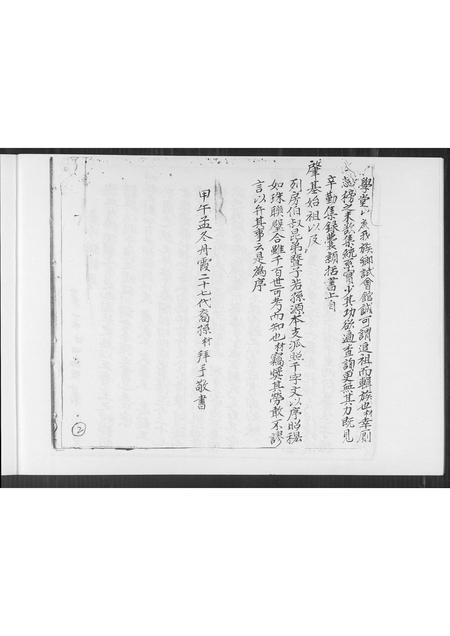 學堂以為我族鄉試會館誠可謂追祖而耀族也材幸則
榜之末欲集統系實少其功欲遍查詢更無其力既見
辛勤集錄囊括舊上自
肇基始祖以及
列房伯叔昆弟暨子若孫源本支派照千字文以序昭穆
如珠聯璧合雖千百世可考而知也材竊奬其勞敢不謬
言以弁其事云是為序
甲午孟冬丹霞二十七代裔孫材拜手敬書
2